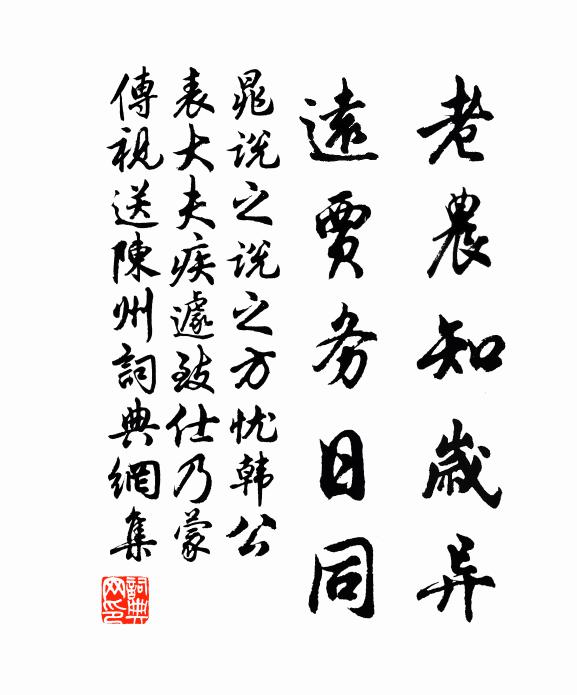 老農知歲异
遠賈务日同
晁说之说之方忧韩公
表大夫疾遽致仕乃蒙
傳視送陳州詞典網集
詞典
网印